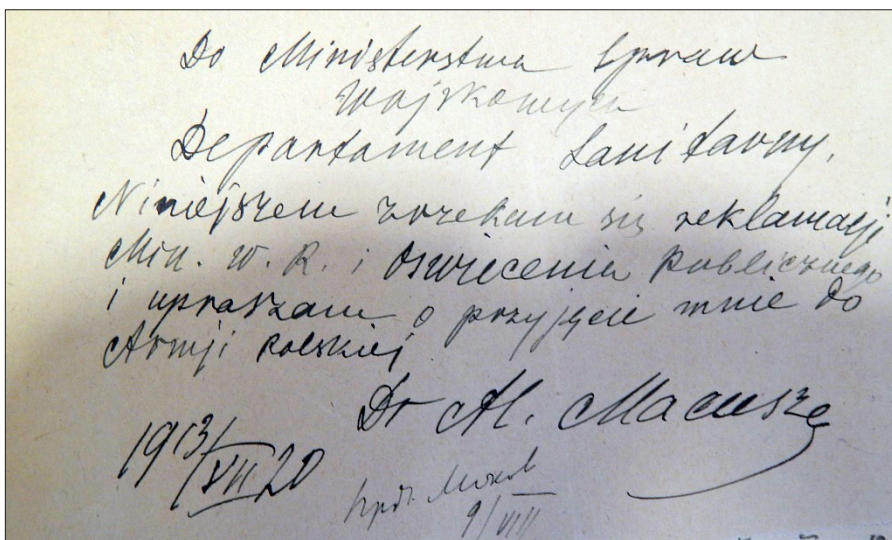 Do Ministerstwa Spraw
Wojskowych
Departament Sanitarny.
Niniejszem zrzekam się reklamacji
Min. W. R. i Oświecenia Publicznego
i upraszam o przyjęcie mnie do
Armji Polskiej
Dr Al. Macusze
19 13/VII 20
9/VIII